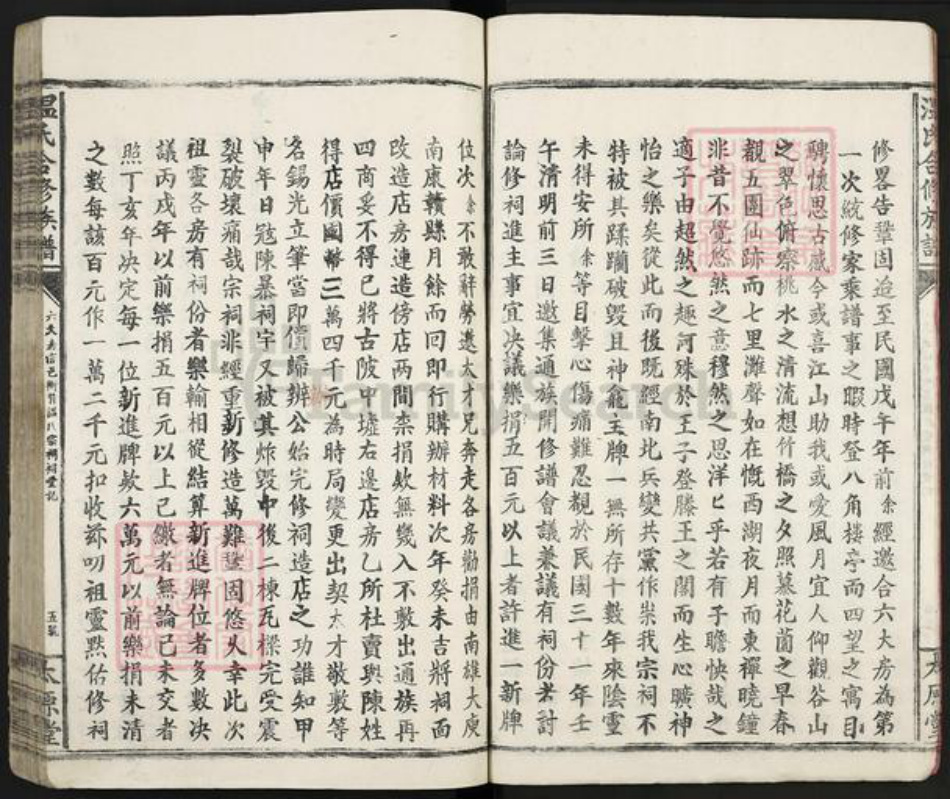 修畧告鞏固迨至民國戊午年前余經邀合六大房為第
一次統修家乘譜事之暇時登八角樓亭而四望之寓目
騁懷思古感今或喜江山助我或愛風月宜人仰觀谷山
之翠色俯察桃水之清流想竹橋之夕照慕花園之早春
觀五團仙跡而七里灘聲如在慨西湖夜月而東禪曉鐘
非昔不覺悠然之意穆然之思洋匕乎若有子瞻怏哉之
適子由超然之趣河殊於王子登滕王之閣而生心曠神
怡之樂矣從此而後既經南北兵變共黨作祟我宗祠不
特被其蹂躪破毀且神龕主牌一無所存十數年來陰靈
未得安所余等目擊心傷痛難忍覩於民國三十一年壬
午清明前三日邀集通族開修譜會議兼議有祠份者討
論修祠進主事宜决議樂捐五百元以上者許進一新牌
位次余不敢辭勞邀太才兄奔走各房勸捐由南雄大庾
南康贛縣月餘而回即行購辦材料次年癸未吉將祠面
改造店房連造傍店兩間柰捐欵無幾入不敷出通族再
四商妥不得已將古陂中墟右邊店房乙所杜賣與陳姓
得店價國幣三萬四千元為時局變更出契太才敬敷等
名錫光立筆當即價歸辦公始完修祠造店之功誰知甲
申年日冦陳暴祠宇又被其炸毀中後二棟瓦樑完受震
裂破壞痛哉宗祠非經重新修造萬難鞏固悠久幸此次
祖靈各房有祠份者樂輸相從結算新進牌位者多數决
議丙戌年以前樂捐五百元以上已繳者無論已未交者
照丁亥年决定每一位新進牌欵六萬元以前樂捐未清
之數每該百元作一萬二千元扣收茲叨祖靈默佑修祠
溫氏合修族譜
太原堂
FamilySearch